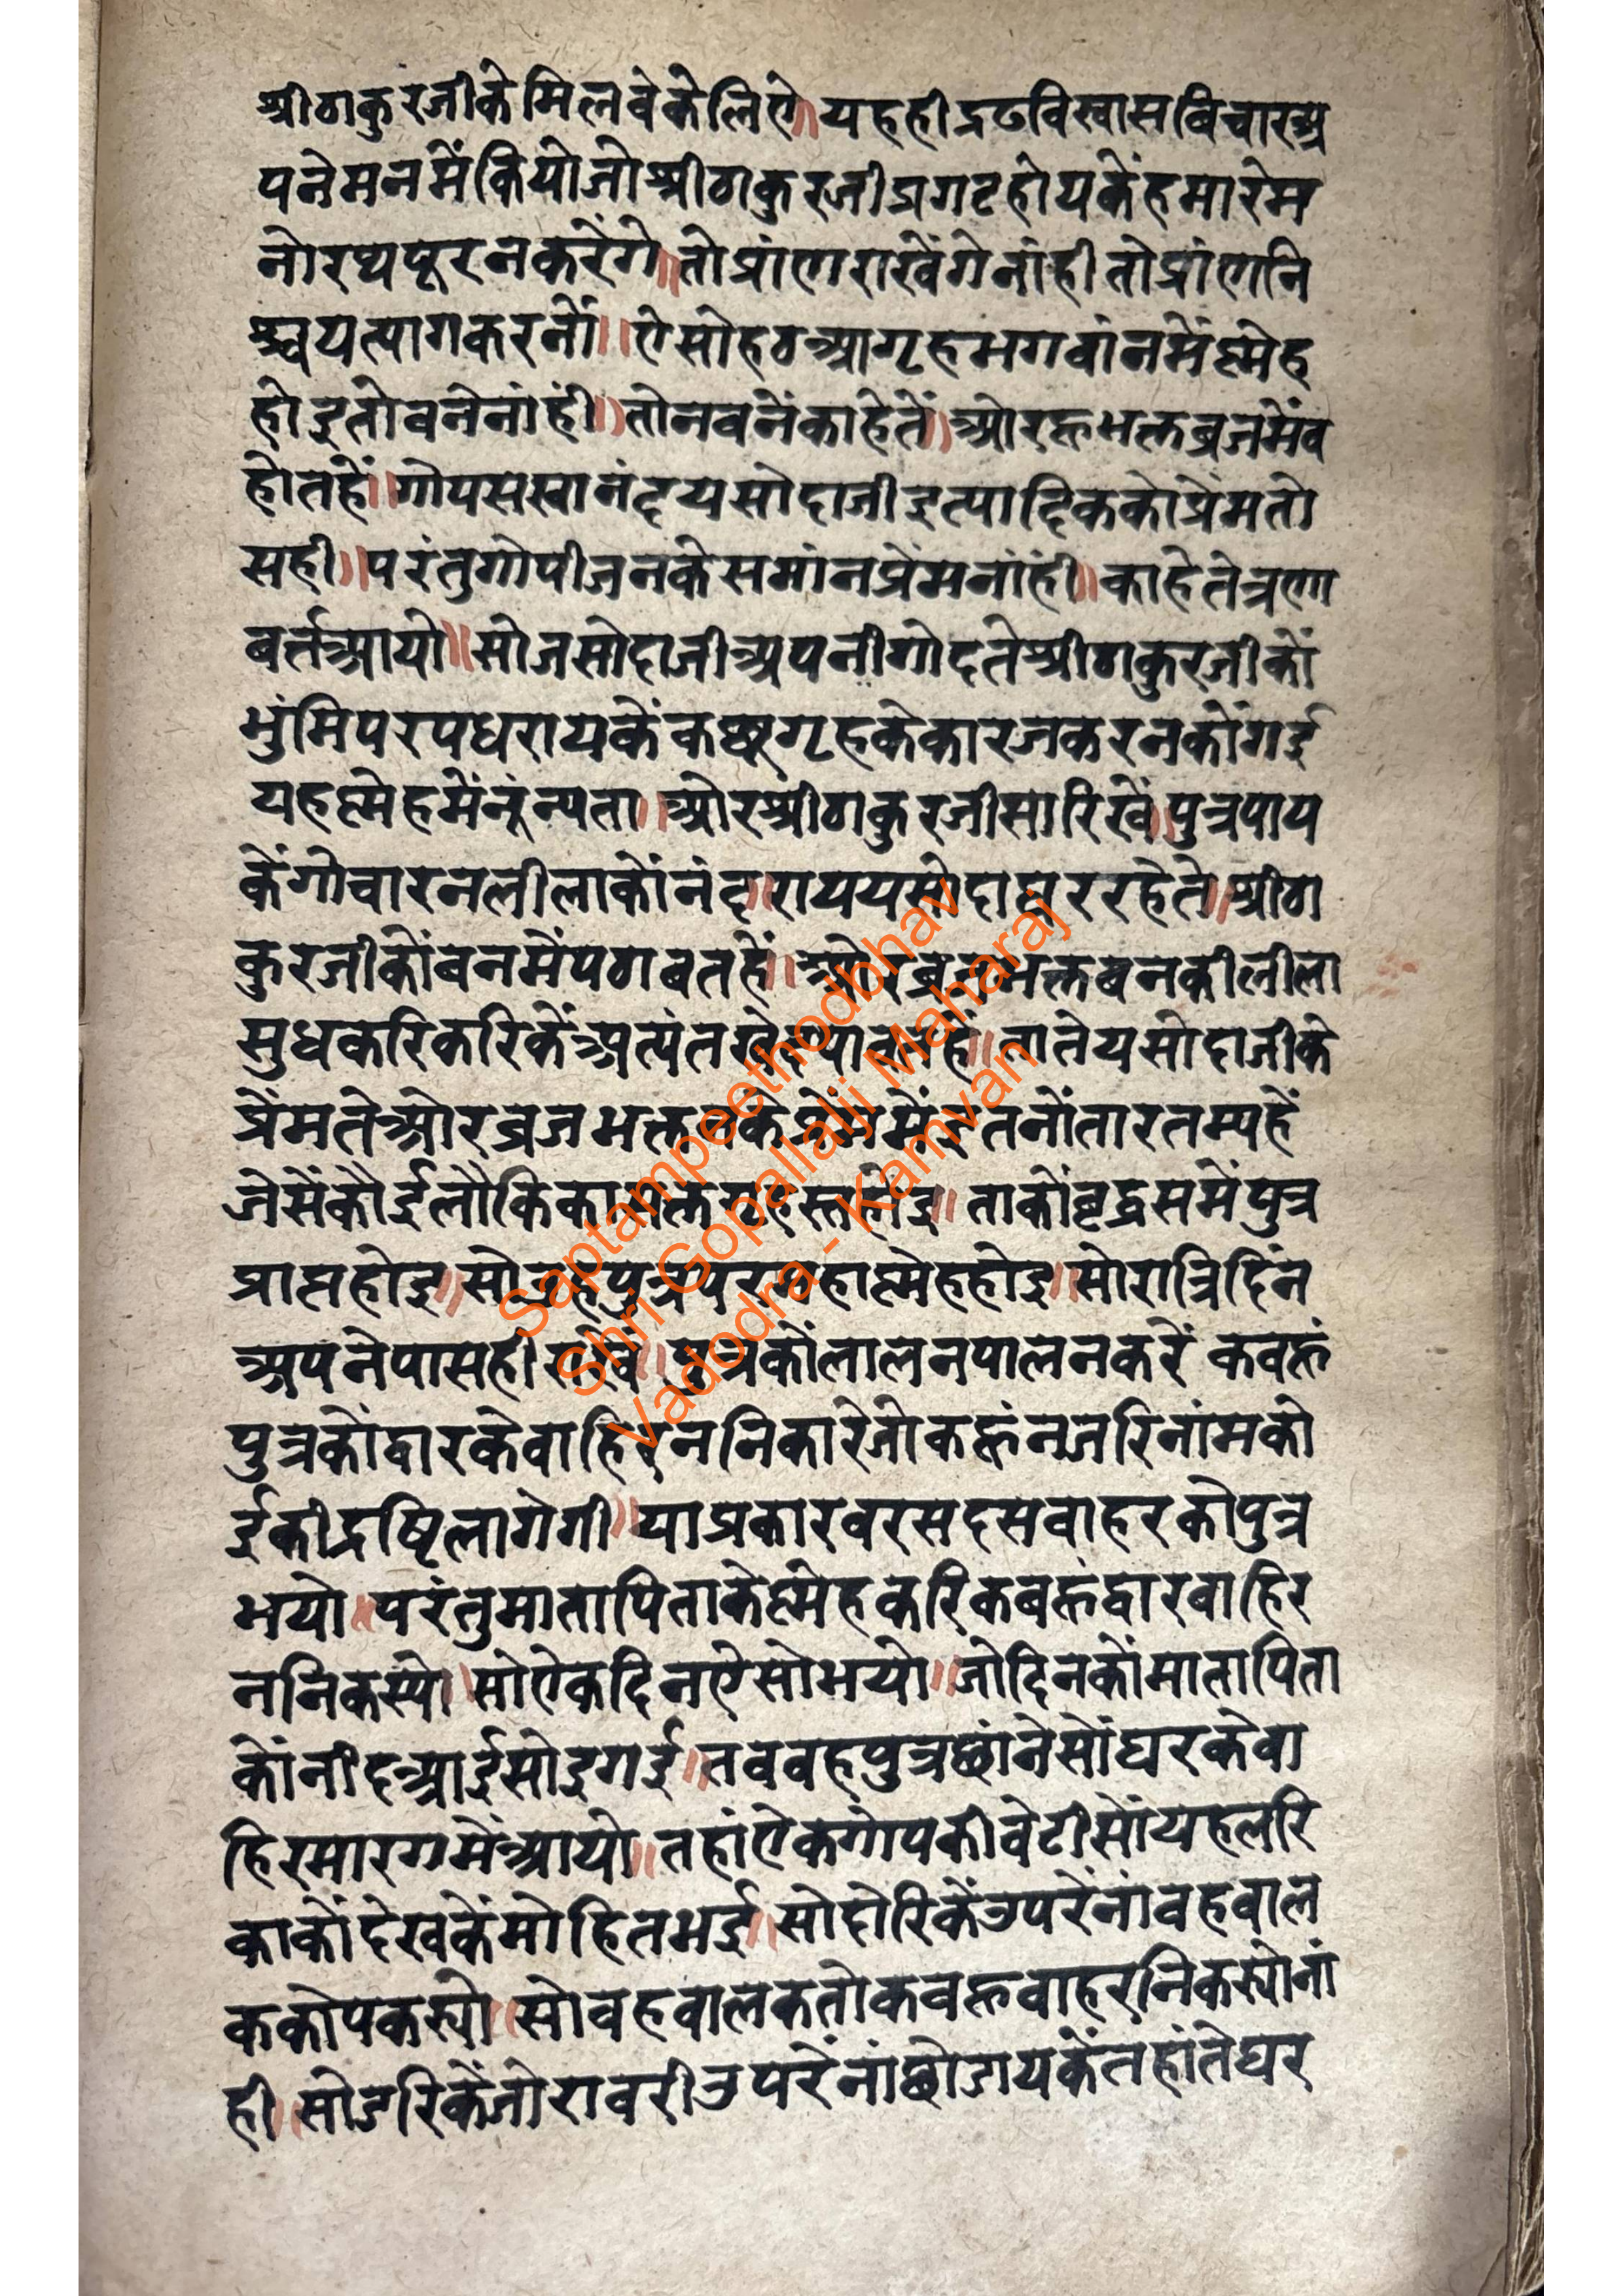 श्रीठाकुरजीकेमिलवेकेलिऐ॥यहहीद्रढविस्वासबिचारअ
पनेमनमेंकियोजोश्रीठाकुरजीप्रगटहोयकेंहमारेम
नोरथपूरनकरेंगे॥तोप्रांणराखेंगेनांहीतोप्रांणनि
श्चयत्यागकरनों॥ऐसोहठआगृहभगवांनमेंस्नेह
होइतोबनेनांहीं॥तोनबनेंकाहेतें॥ओरहूभक्तब्रजमेंब
होतहें॥गोपसखानंदयसोदाजीइत्यादिककोप्रेमतो
सही॥परंतुगोपीजनकेसमांनप्रेमनांहीं॥काहेतेत्रणा
वर्तआयो॥सोजसोदाजीअपनीगोदतेश्रीठाकुरजीकों
भुंमिपरपधरायकेंकछुगृहकेकारजकरनकोंगई
यहस्नेहमेंनूंन्यता॥ओरश्रीठाकुरजीसारिखे॥पुत्रपाय
केंगोचारनलीलाकोंनंद॥राययसोदाघररहेते॥श्रीठा
कुरजीकोंबनमेंपठावतहें॥ओरब्रजभक्तबनकीलीला
सुधकरिकरिकेंअत्यंतखेदपावतहें॥तातेयसोदाजीके
प्रेंमतेओरब्रजभक्तनकेप्रेंममेंइतनोंतारतम्यहें
जेसेंकोईलौकिकासक्तगृहस्तहोइ॥ताकोंवृद्धसमेंपुत्र
प्राप्तहोइ॥सोवहपुत्रपरमहास्नेहहोइ॥सोरात्रिदिंन
अपनेपासही राखें॥पुत्रकोंलालनपालनकरें कवहूं
पुत्रकोंद्वारकेवाहिरननिकारेजोकहूंनजरिनांमको
ईकीद्रष्टिलागेगी॥याप्रकारवरसदसवाहरकोपुत्र
भयो॥परंतुमातापिताकेस्नेहकरिकबहूंद्वारबाहिर
ननिकस्यो॥सोऐकदिनऐसोभयो॥जोदिनकोंमातापिता
कोंनीदआईसोइगई॥तववहपुत्रछांनेसोंघरकेवा
हिरमारगमेंआयो॥तहांऐकगोपकीवेटीसोंयहलरि
काकोंदेखकेंमोहितभई॥सोदोरिकेंउपरेंनांवहवाल
ककोपकस्यो॥सोवहवालकतोकवहूवाहरनिकस्योनां
ही॥सोडरिकेंजोरावरीउपरेंनांछोडायकेंतहांतेघर
Saptampeethodbhav
Shri Gopallalji Maharaj
Vadodra - Kamvan